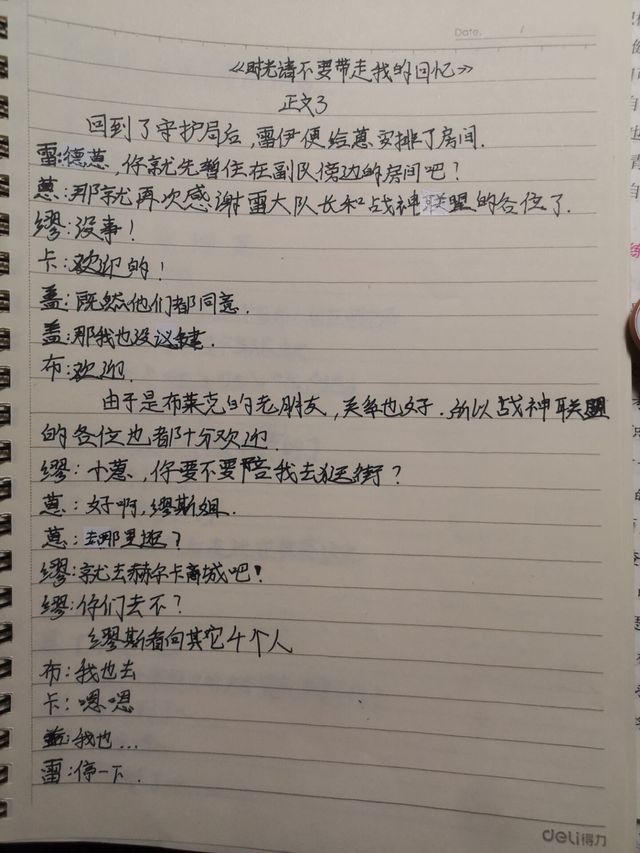 Date. /
《时光请不要带走我的回忆》
正文3
回到了守护局后,雷伊便给蒽安排了房间.
雷:德蒽,你就先暂住在副队傍边的房间吧?
蒽:那就再次感谢雷大队长和战神联盟的各位了.
缪:没事!
卡:欢迎的!
盖:既然他们都同意.
盖:那我也没议肄.
布:欢迎.
由于是布莱克的老朋友,关系也好.所以战神联盟
的各位也都十分欢迎.
缪:小蒽,你要不要陪我去逛街?
蒽:好啊,缪斯姐.
蒽:去哪里逛?
缪:就去赫尔卡商城吧!
缪:你们去不?
缪斯看向其它4个人
布:我也去
卡:嗯嗯
盖:我也...
雷:停一下.
deli得力